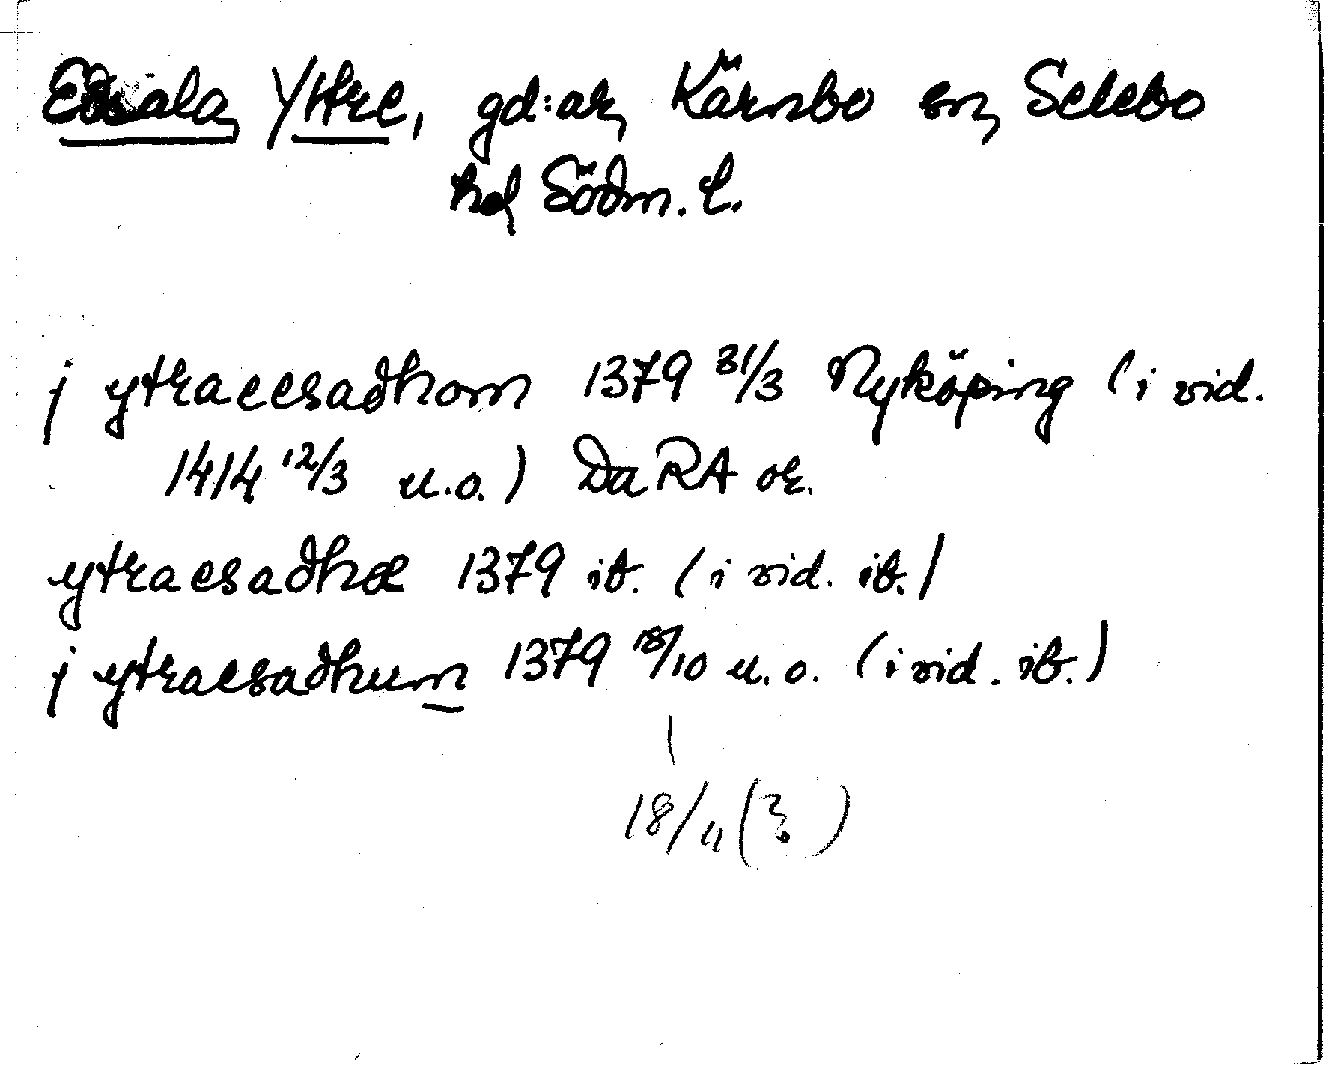 Edsala, Yttre, gd:ar, Kärnbo sn, Selebo
hd Södm. l.
j ytraeesadhom 1379 31/3 Nyköping (i vid.
1414 12/3 u.o.) Da RA or.
ytraesadhæ 1379 ib. (i vid. ib.)
j ytraesadhum 1379 18/10 u.o. (i vid. ib.)
18/11 (?)